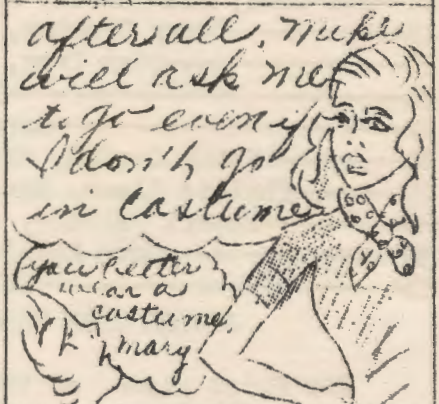 after all, Mike
will ask me
to go even if
I don't go
in costume
you better
wear a
costume,
Mary